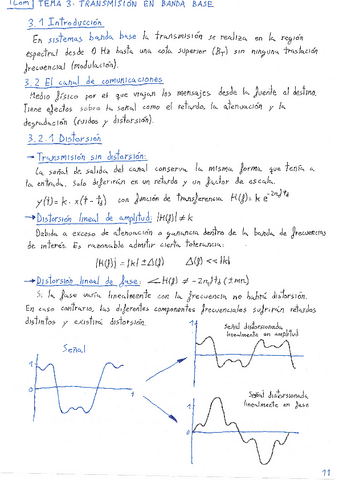 TCom TEMA 3: TRANSMISIÓN EN BANDA BASE
3.1 Introducción
En sistemas banda base la transmisión se realiza en la región
espectral desde 0 Hz hasta una cota superior (B_T) sin ninguna traslación
frecuencial (modulación).
3.2 El canal de comunicaciones
Medio físico por el que viajan los mensajes desde la fuente al destino.
Tiene efectos sobre la señal como el retardo, la atenuación y la
degradación (ruidos y distorsión).
3.2.1 Distorsión
→ Transmisión sin distorsión:
La señal de salida del canal conserva la misma forma que tenía a
la entrada. Solo diferirán en un retardo y un factor de escala.
y(t) = k · x(t - t_d) con función de transferencia H(f) = k e^{-2πjft_d}
→ Distorsión lineal de amplitud: |H(f)| ≠ k
Debida a exceso de atenuación o ganancia dentro de la banda de frecuencias
de interés. Es razonable admitir cierta tolerancia:
|H(f)| = |k| ± Δ(f) Δ(f) << |k|
→ Distorsión lineal de fase: ∠H(f) ≠ -2πft_d (±πn)
Si la fase varía linealmente con la frecuencia no habrá distorsión.
En caso contrario, las diferentes componentes frecuenciales sufrirán retardos
distintos y existirá distorsión.
Señal
1
0
1
Señal distorsionada
linealmente en amplitud
1
0
Señal distorsionada
linealmente en fase
1
0
11